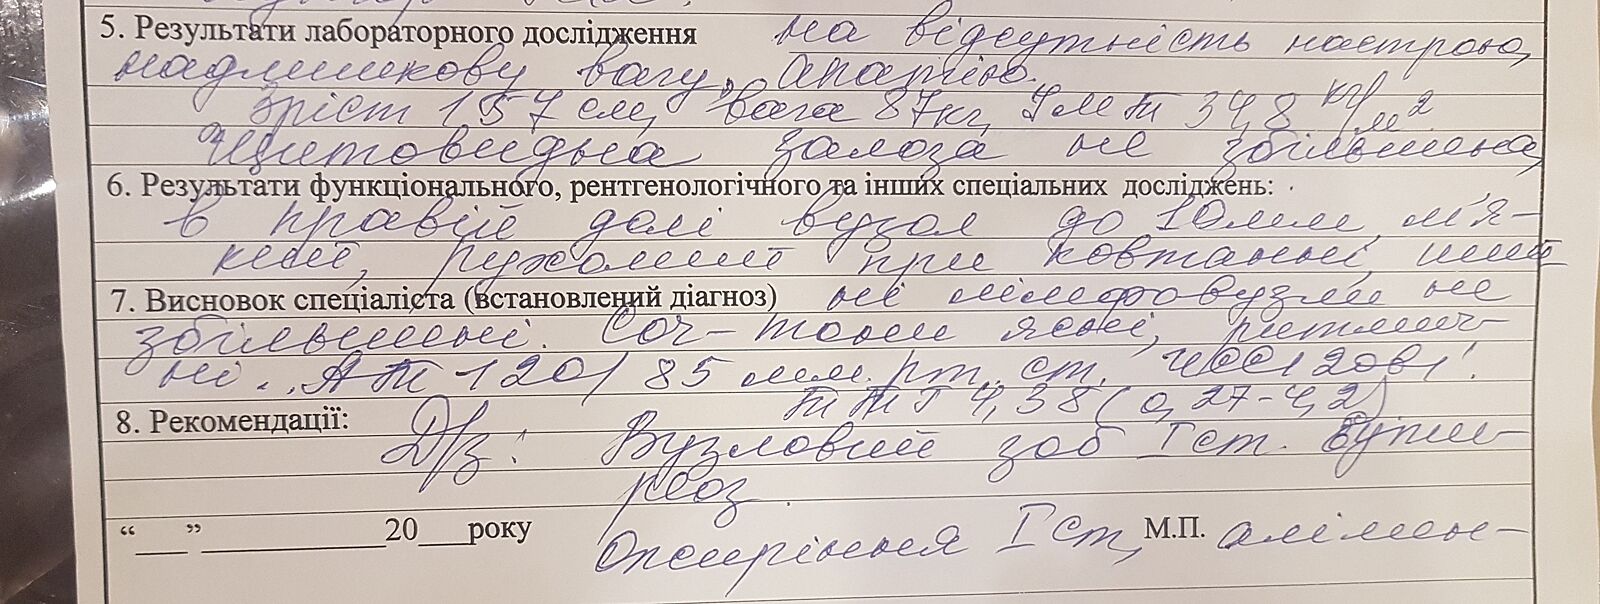 5. Результати лабораторного дослідження на відсутність настрою,
надлишкову вагу, апатію.
Зріст 157 см, вага 87кг, ІМТ 34,8 кг/м2
Щитовидна залоза не збільшена,
6. Результати функціонального, рентгенологічного та інших спеціальних досліджень:
в правій долі вузол до 10мм, м'я-
кий, рухомий при ковтанні, ший
7. Висновок спеціаліста (встановлений діагноз) ні лімфовузли не
збільшені. Сог- тони ясні, ритміч-
ні. АТ 120/85 мм. рт. ст. ЧСС
8. Рекомендації: ТТГ 4,38 (0,27-4,2)
Д/з: Вузловий зоб І ст. Еути-
реоз
“___”____________20___року Ожиріння І ст, М.П. алімен-